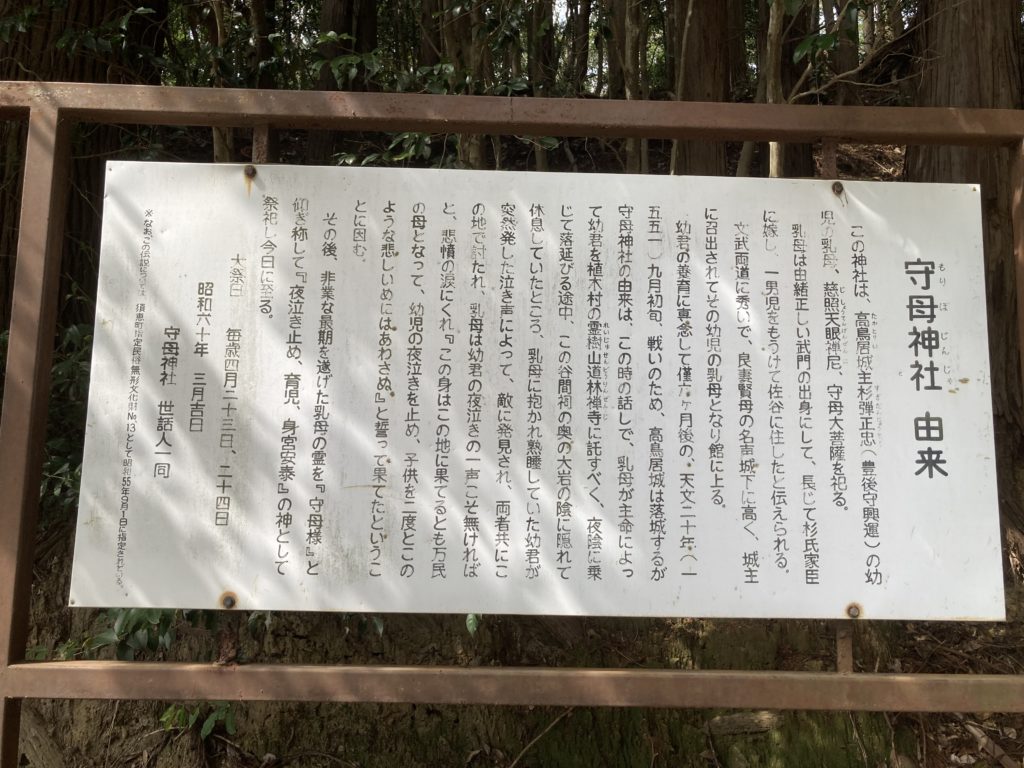 守母神社 由来
もりぼじんじゃ
この神社は、高鳥居城主杉弾正忠(豊後守興運)の幼
児の乳母、慈照天眼禅尼、守母大菩薩を祀る。
乳母は由緒正しい武門の出身にして、長じて杉氏家臣
に嫁し、一男児をもうけて佐谷に住したと伝えられる。
文武両道に秀いで、良妻賢母の名声城下に高く、城主
に召出されてその幼児の乳母となり館に上る。
幼君の善育に専念して僅 ヶ月後の、天文二十年(一
五五一)九月初旬、戦いのため、高鳥居城は落城するが
守母神社の由来は、この時の話しで、乳母が主命によっ
て幼君を植木村の霊樹山道林禅寺に託すべく、夜陰に乗
じて落延びる途中、この谷間祠の奥の大岩の陰に隠れて
休息していたところ、乳母に抱かれ熟睡していた幼君が
突然発した泣き声によって、敵に発見され、両者共にこ
の地で討たれ、乳母は幼君の夜泣きの一声こそ無ければ
と、悲憤の涙にくれ『この身はこの地に果てるとも万民
の母となって、幼児の夜泣きを止め、子供を二度とこの
ような悲しいめにはあわさぬ』と誓って果てたというこ
とに因む。
その後、非業な最期を遂げた乳母の霊を『守母様』と
仰ぎ称して『夜泣き止め、育児、身宮安泰』の神として
祭祀し今日に至る。
大祭日 毎歳四月二十三日、二十四日
昭和六十年 三月吉日
守母神社 世話人一同
※なおこの伝説については、須恵町指定民俗無形文化財№13として昭和55年9月1日に指定されている。